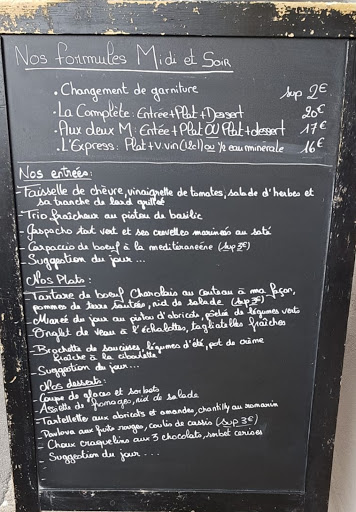 Nos formules Midi et Soir
• Changement de garniture sup 2€
• La Complète: Entrée+Plat+Dessert 20€
• Aux deux M: Entée+Plat OU Plat+dessert 17€
• L'Express: Plat+V.vin(12cl) ou ½ eau minérale 16€
Nos entrées:
- Faisselle de chèvre, vinaigrette de tomates, salade d'herbes et
sa tranche de lard grillée
- Trio fraîcheur au pistou de basilic
- Gaspacho tout vert et ses crevettes marinées au saté
- Carpaccio de boeuf à la mediterranéene (sup 3€)
- Suggestion du jour...
Nos Plats:
- Tartare de boeuf Charolais au couteau à ma façon,
pommes de terre sautées, nid de salade (sup 3€)
- Marée du jour au pistou d'abricots, poêlée de légumes verts
- Onglet de veau à l'échalottes, tagliatelles fraîches
- Brochette de saucisses, légumes d'été, pot de crème
fraîche à la ciboulette
- Suggestion du jour...
Nos desserts:
- Coupe de glaces et sorbets
- Assiette de fromages, nid de salade
- Tartelette aux abricots et amandes, chantilly au romarin
- Pavlova aux fruits rouges, coulis de cassis (sup 3€)
- Choux craquelins aux 3 chocolats, sorbet cerises
- Suggestion du jour....